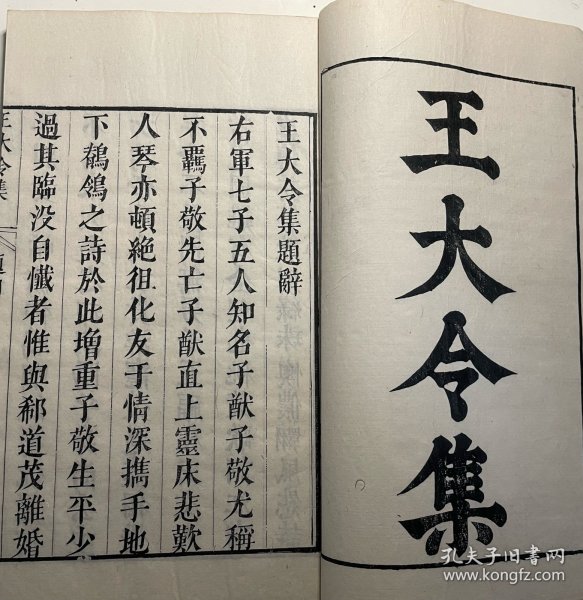 王大令集
王大令集題辭
右軍七子五人知名子猷子敬尤稱
不羈子敬先亡子猷直上靈床悲歎
人琴亦頓絕徂化友于情深擕手地
下鶺鴒之詩於此增重子敬生平少
過其臨没自懴者惟與郗道茂離婚
王大令集
孔夫子旧书网
www.kongfz.com